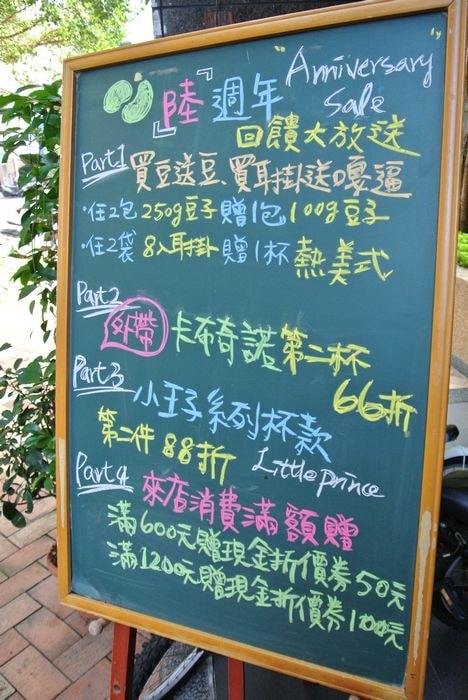 『陸』週年 Anniversary Sale
回饋大放送
Part1 買豆送豆、買耳掛送嘎逼
·任2包 250g豆子 贈1包100g豆子
·任2袋 8入耳掛 贈1杯 熱美式
Part2
外帶 卡布奇諾 第二杯 66折
Part3 小王子系列杯款
第二件 88折 Little prince
Part4 來店消費滿額贈
滿600元贈現金折價券50元
滿1200元贈現金折價券100元